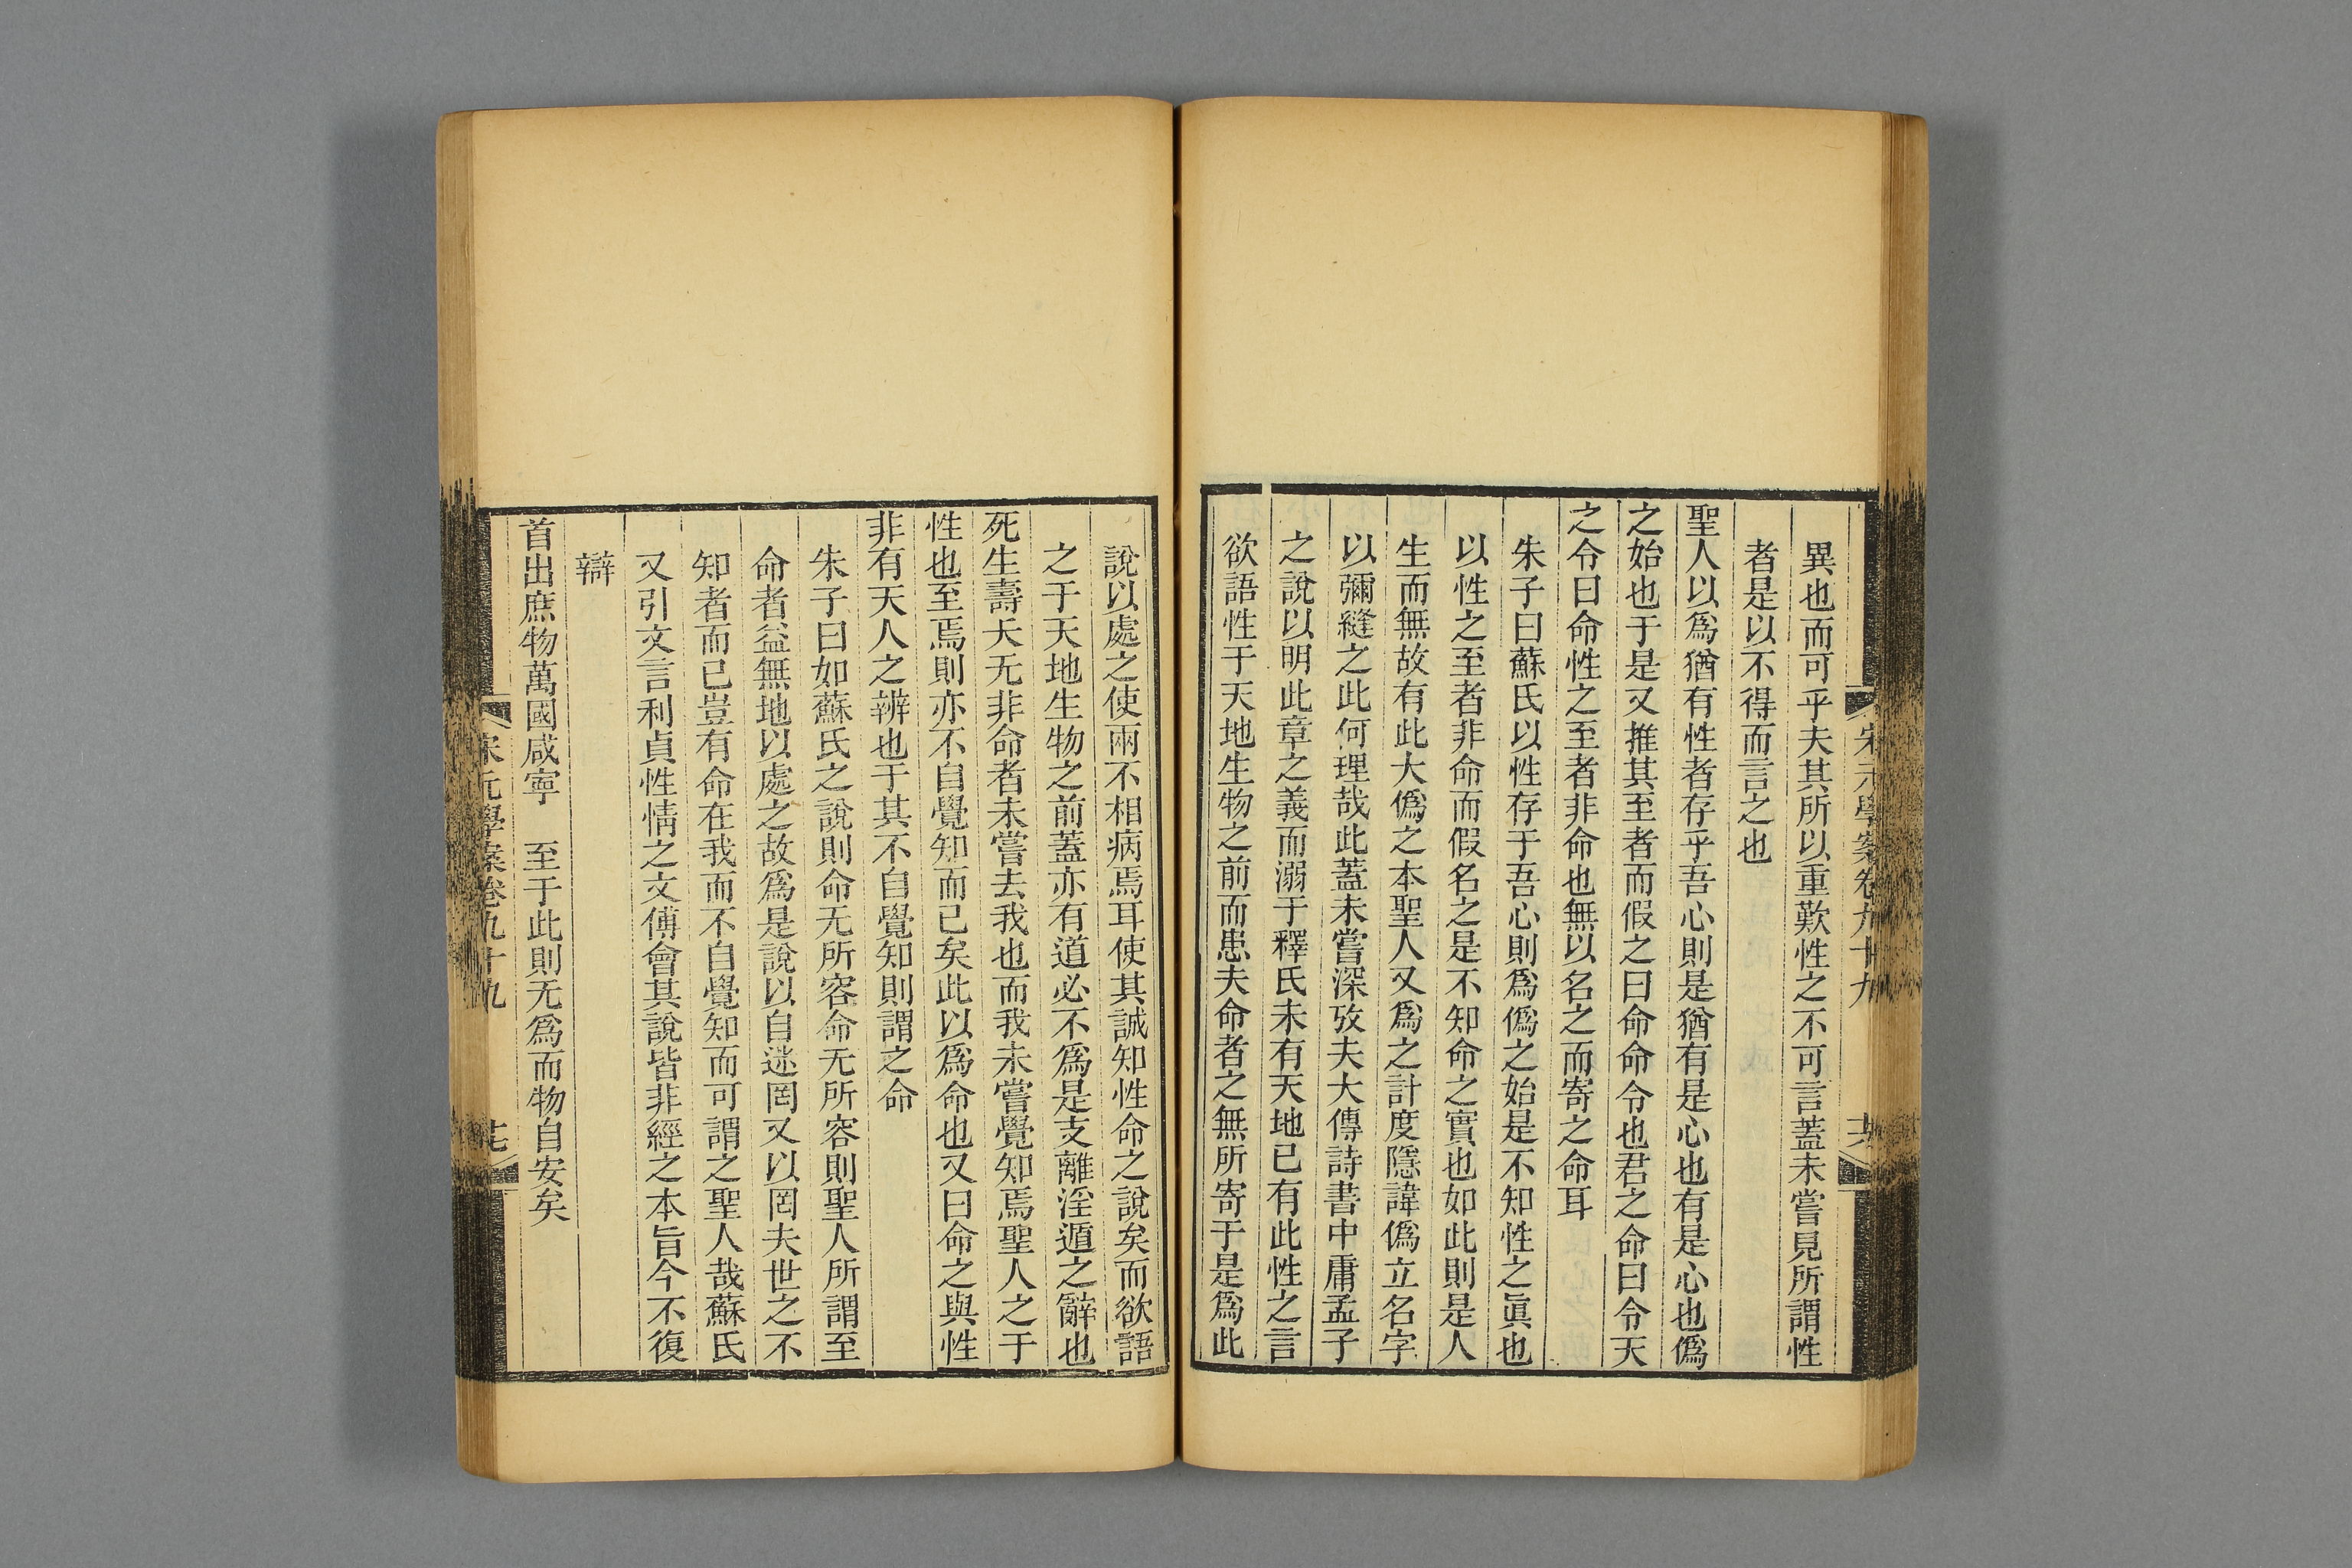 宋元學案卷九十九
異也而可乎夫其所以重歎性之不可言蓋未嘗見所謂性
者是以不得而言之也
聖人以爲猶有性者存乎吾心則是猶有是心也有是心也僞
之始也于是又推其至者而假之曰命命令也君之命曰令天
之令曰命性之至者非命也無以名之而寄之命耳
朱子曰蘇氏以性存于吾心則爲僞之始是不知性之眞也
以性之至者非命而假名之是不知命之實也如此則是人
生而無故有此大僞之本聖人又爲之計度隱諱僞立名字
以彌縫之此何理哉此蓋未嘗深攷夫大傳詩書中庸孟子
之說以明此章之義而溺于釋氏未有天地已有此性之言
欲語性于天地生物之前而患夫命者之無所寄于是爲此
說以處之使兩不相病焉耳使其誠知性命之說矣而欲語
之于天地生物之前蓋亦有道必不爲是支離淫遁之辭也
死生壽夭无非命者未嘗去我也而我未嘗覺知焉聖人之于
性也至焉則亦不自覺知而已矣此以爲命也又曰命之與性
非有天人之辨也于其不自覺知則謂之命
朱子曰如蘇氏之說則命无所容命无所容則聖人所謂至
命者益無地以處之故爲是說以自迷罔又以罔夫世之不
知者而已豈有命在我而不自覺知而可謂之聖人哉蘇氏
又引文言利貞性情之文傅會其說皆非經之本旨今不復
辯
首出庶物萬國咸寧　至于此則无爲而物自安矣
宋元學案卷九十九